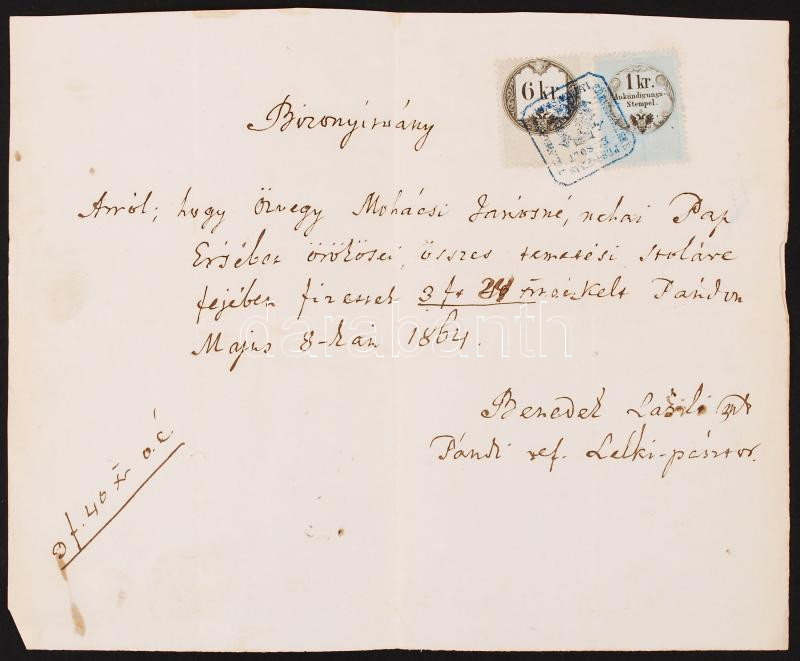 6 kr.
1 kr.
Ankündigungs-
Stempel.
Bizonyitvány
Arról, hogy Özvegy Mohácsi Jánosné, néhai Pap
Ersébet örökösei, összes temetési stoláre
fejében fizessek 3 ft kelt Pándon
Május 8-kán 1864.
Benedek László mk
Pándi ref. Lelki-pásztor.
f. 40 xr o. é.
darabanth